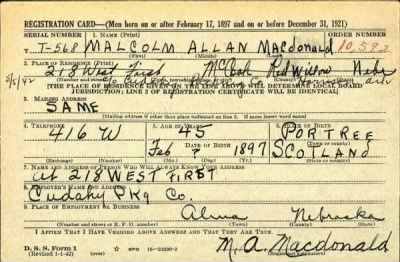 REGISTRATION CARD—(Men born on or after February 17, 1897 and on or before December 31, 1921)
SERIAL NUMBER 1. NAME (Print) ORDER NUMBER
T-568 MALCOLM ALLAN MACdonald 10,592
(First) (Middle) (Last)
2. PLACE OF RESIDENCE (Print)
218 West First McCook Red Willow Nebr
5/5/42
(Number and street) (Town, township, village, or city) (County) (State)
[THE PLACE OF RESIDENCE GIVEN ON THE LINE ABOVE WILL DETERMINE LOCAL BOARD
JURISDICTION; LINE 2 OF REGISTRATION CERTIFICATE WILL BE IDENTICAL]
3. MAILING ADDRESS
SAME
(Mailing address if other than place indicated on line 2. If same insert word same)
4. TELEPHONE 5. AGE IN YEARS 6. PLACE OF BIRTH
416 W 45 PORTREE
DATE OF BIRTH (Town or county)
Feb 1897 SCOTLAND
(Exchange) (Number) (Mo.) (Day) (Yr.) (State or country)
7. NAME AND ADDRESS OF PERSON WHO WILL ALWAYS KNOW YOUR ADDRESS
At 218 WEST FIRST
8. EMPLOYER'S NAME AND ADDRESS
Cudahy Pkg Co.
9. PLACE OF EMPLOYMENT OR BUSINESS
Alma Nebraska
(Number and street or R. F. D. number) (Town) (County) (State)
I AFFIRM THAT I HAVE VERIFIED ABOVE ANSWERS AND THAT THEY ARE TRUE.
D. S. S. Form 1
(Revised 1-1-42) (over)
M. A. Macdonald